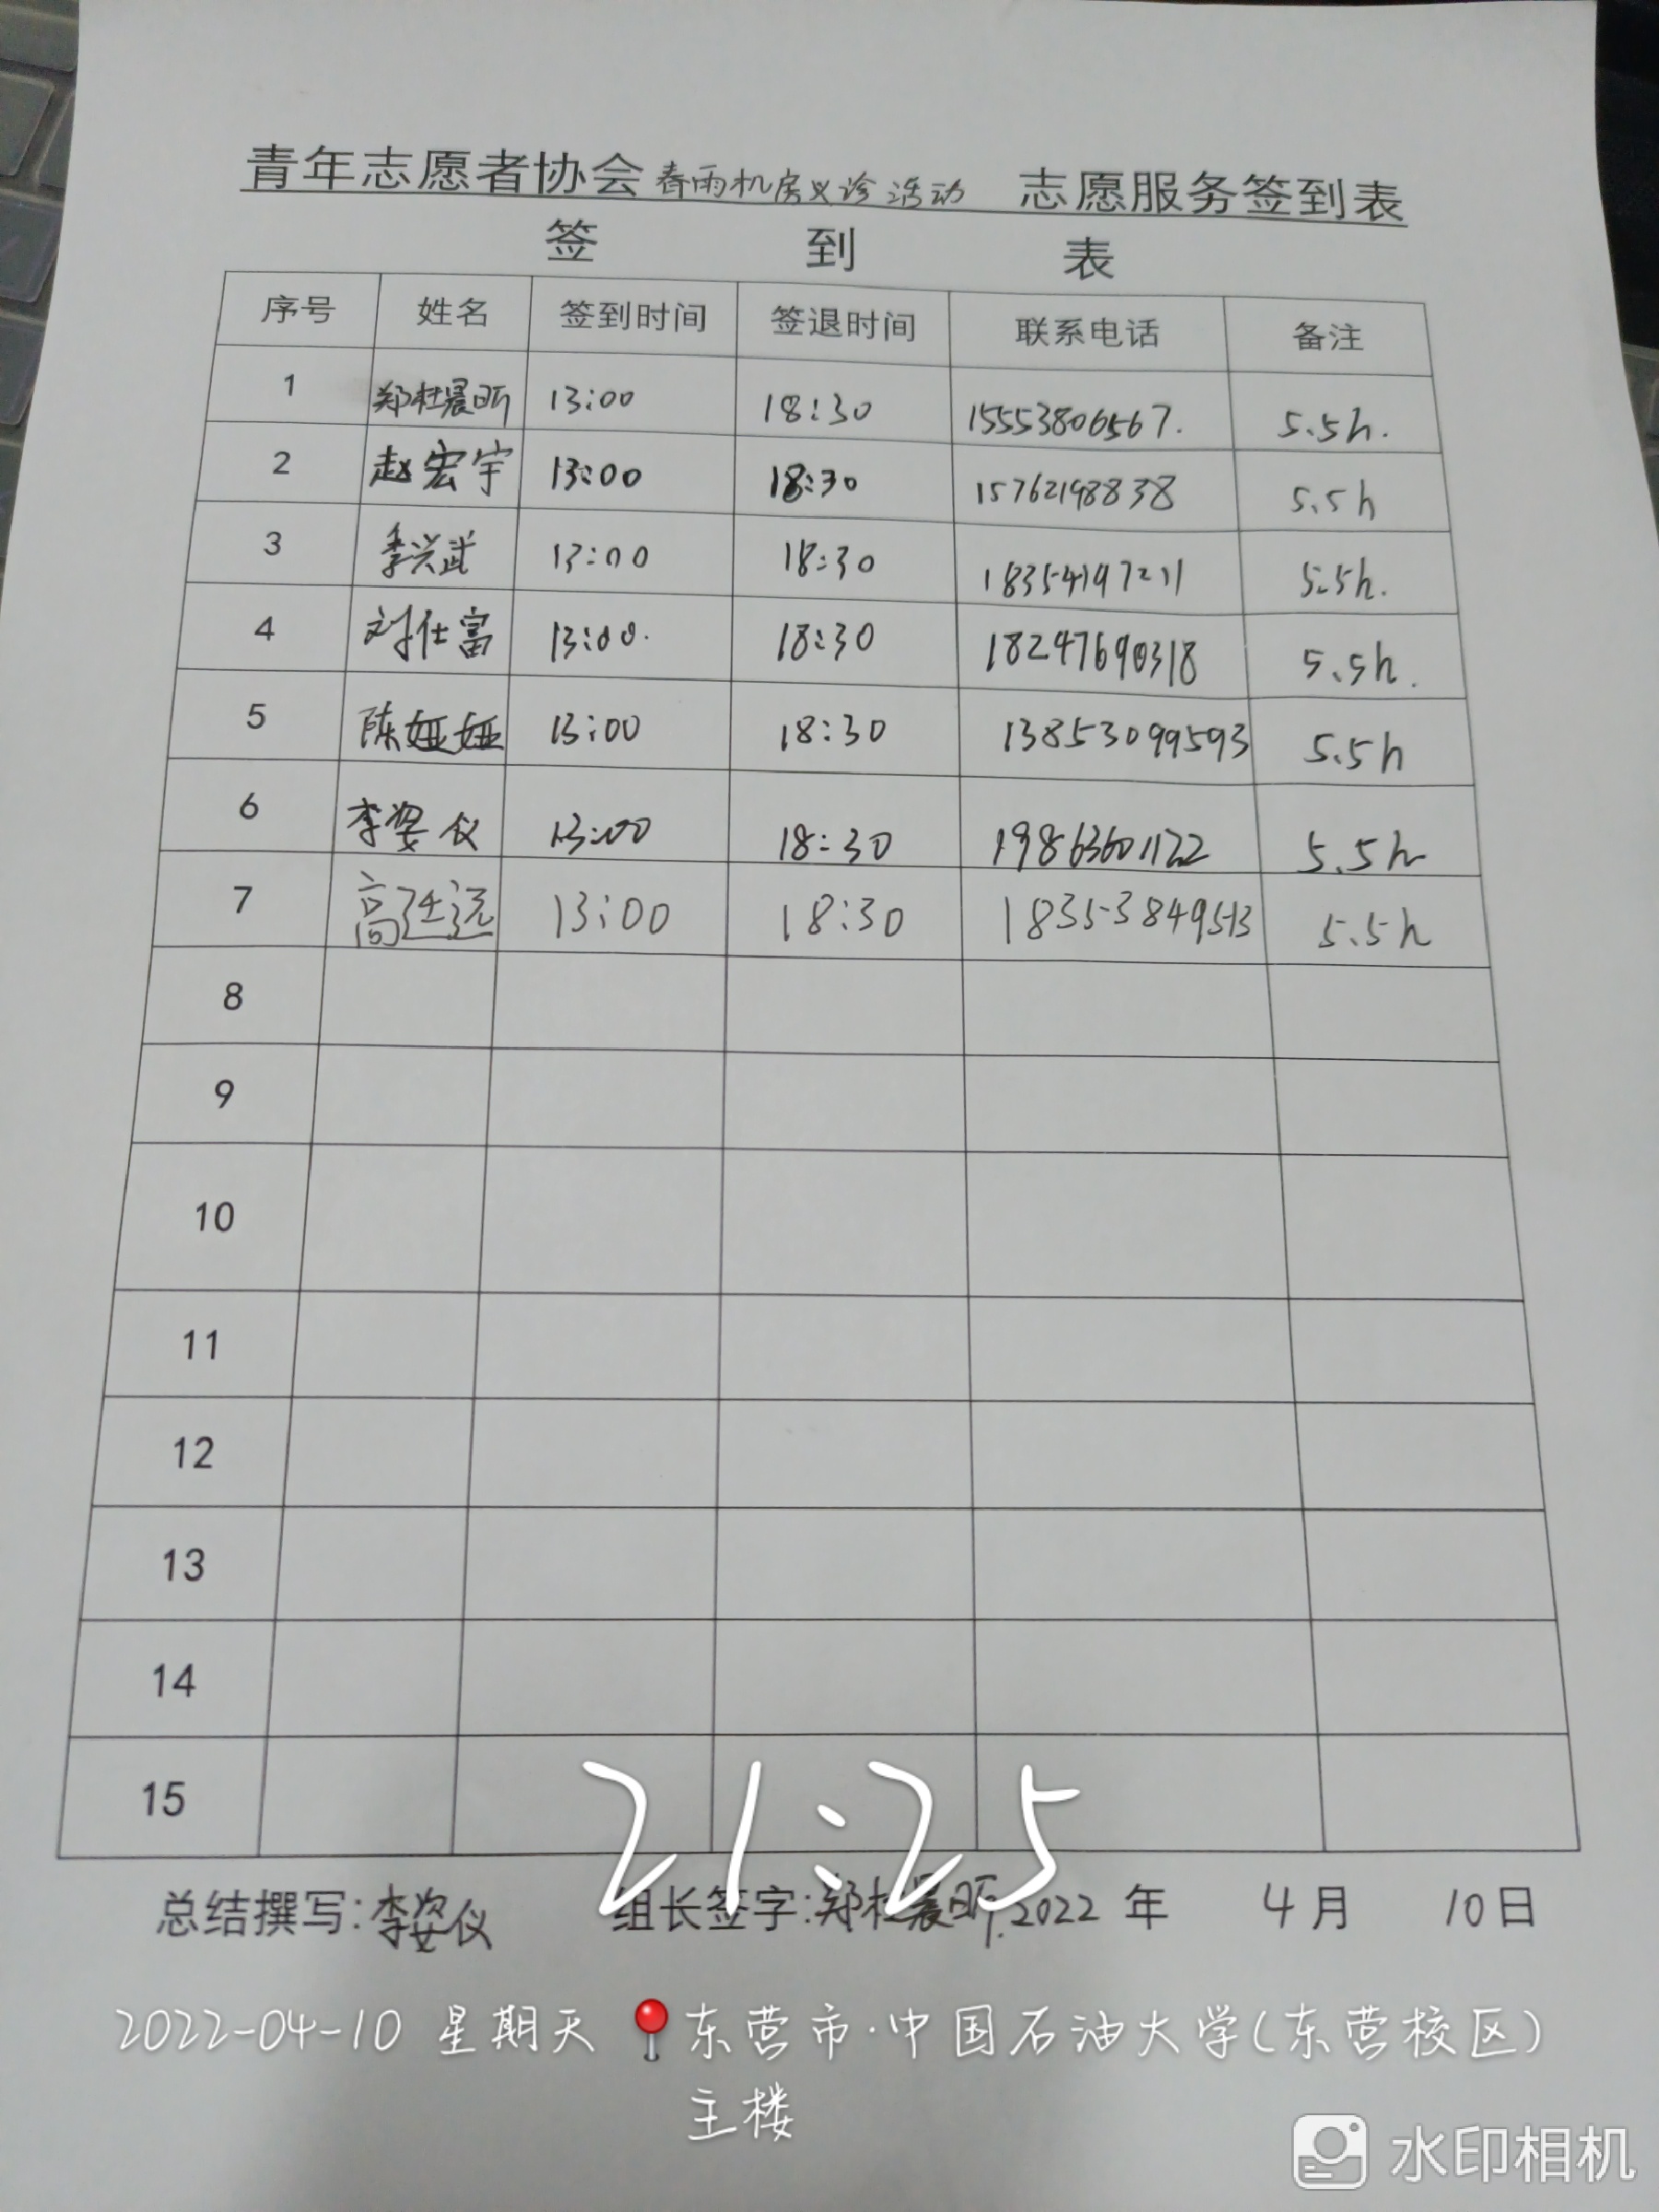 青年志愿者协会春雨机房义诊活动 志愿服务签到表
签 到 表
序号 姓名 签到时间 签退时间 联系电话 备注
1 郑杜晨昕 13:00 18:30 15553806567. 5.5h.
2 赵宏宇 13:00 18:30 15762198838 5.5h
3 李兴武 13:00 18:30 18354197211 5.5h.
4 刘仕富 13:00. 18:30 18247690318 5.5h.
5 陈娅娅 13:00 18:30 13853099593 5.5h
6 李姿仪 13:00 18:30 19863601122 5.5h
7 高廷远 13:00 18:30 18353849513 5.5h
8
9
10
11
12
13
14
15
21:25
总结撰写:李姿仪 组长签字:郑杜晨昕. 2022 年 4月 10日
2022-04-10 星期天 东营市·中国石油大学(东营校区)
主楼
水印相机